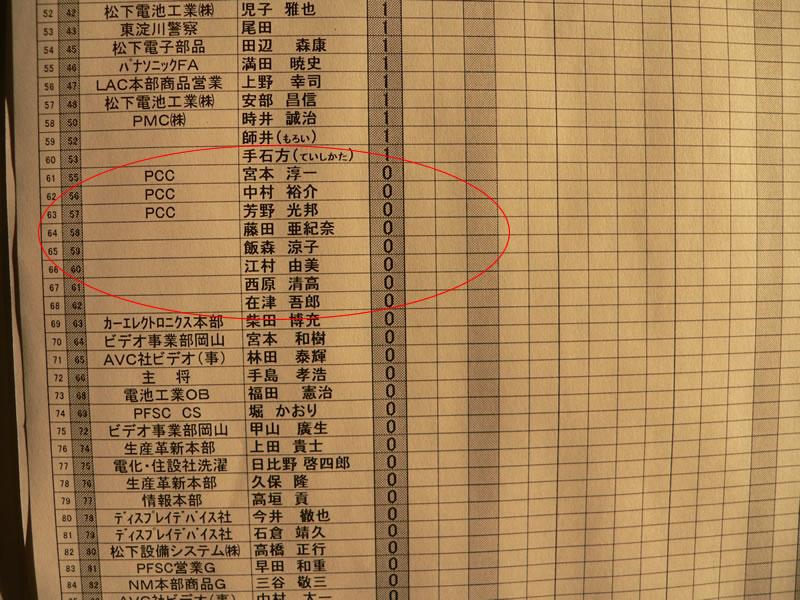 52 42 松下電池工業㈱ 児子 雅也 1
53 43 東淀川警察 尾田 1
54 45 松下電子部品 田辺 森康 1
55 46 ﾊﾟﾅｿﾆｯｸFA 満田 暁史 1
56 47 LAC本部商品営業 上野 幸司 1
57 48 松下電池工業㈱ 安部 昌信 1
58 50 PMC㈱ 時井 誠治 1
59 52 師井(もろい) 1
60 53 手石方(ていしかた) 1
61 55 PCC 宮本 淳一 0
62 56 PCC 中村 裕介 0
63 57 PCC 芳野 光邦 0
64 58 藤田 亜紀奈 0
65 59 飯森 涼子 0
66 60 江村 由美 0
67 61 西原 清高 0
68 62 在津 吾郎 0
69 63 ｶｰｴﾚｸﾄﾛﾆｸｽ本部 柴田 博充 0
70 64 ビデオ事業部岡山 宮本 和樹 0
71 65 AVC社ビデオ(事) 林田 泰輝 0
72 66 主 将 手島 孝浩 0
73 68 電池工業OB 福田 憲治 0
74 69 PFSC CS 堀 かおり 0
75 72 ビデオ事業部岡山 甲山 廣生 0
76 74 生産革新本部 上田 貴士 0
77 75 電化・住設社洗濯 日比野 啓四郎 0
78 76 生産革新本部 久保 隆 0
79 77 情報本部 高垣 貢 0
80 78 ﾃﾞｨｽﾌﾟﾚｲﾃﾞﾊﾞｲｽ社 今井 徹也 0
81 79 ﾃﾞｨｽﾌﾟﾚｲﾃﾞﾊﾞｲｽ社 石倉 靖久 0
82 80 松下設備システム㈱ 高橋 正行 0
83 81 PFSC営業G 早田 和重 0
84 82 NM本部商品G 三谷 敬三 0
AVC社ビデオ(事) 中村